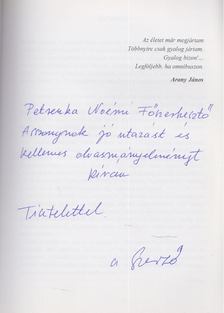 Az életet már megjártam
Többnyire csak gyalog jártam.
Gyalog bizon'...
Legföljebb, ha omnibuszon.
Arany János
Petrenka Noémi Főszerkesztő
Asszonynak jó utazást és
kellemes olvasmányélményt
kíván
Tisztelettel
a Szerző